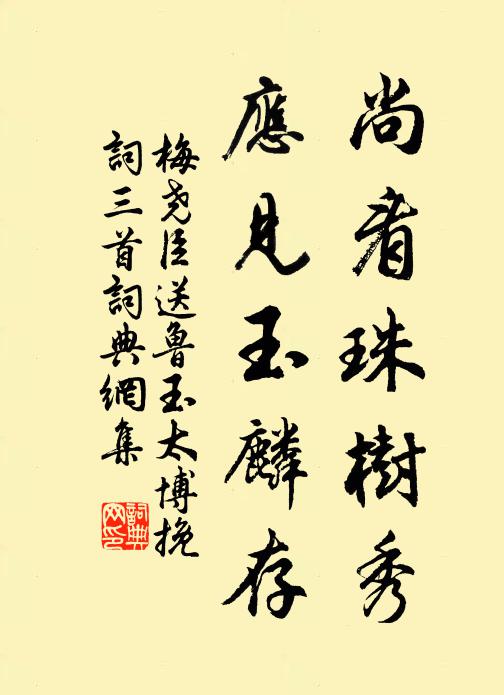 尚看珠樹秀
應見玉麟存
梅堯臣送魯玉太博挽
詞三首詞典網集
詞典网印